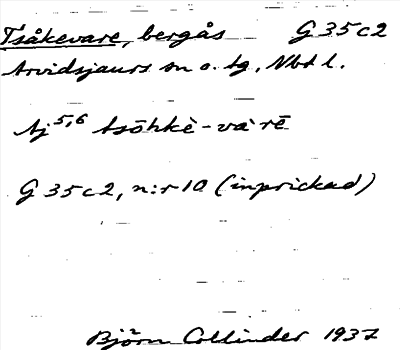 Tsåkevare, bergås G 35 c 2
Arvidsjaurs sn o. tg, Nbtl.
Aj 5,6 tsōhkè-và'rē
G 35 c 2, n:r 10 (inprickad)
Björn Collinder 1937